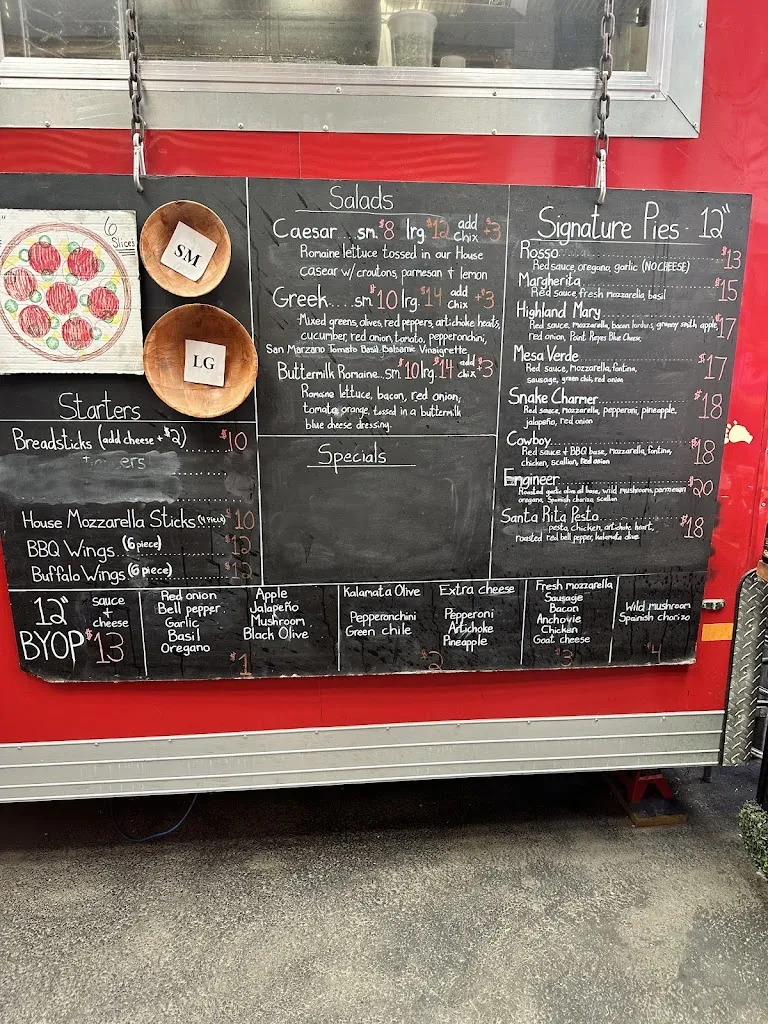 6
Slices
SM
LG
Starters
Breadsticks (add cheese + $2) $10
House Mozzarella Sticks (4 Piece) $10
BBQ Wings (6 piece) $12
Buffalo Wings (6 piece) $12
Salads
Caesar....sm. $8 lrg. $12 add chix + $3
Romaine lettuce tossed in our House
casear w/croutons, parmesan + lemon
Greek....sm $10 lrg. $14 add chix + $3
Mixed greens, olives, red peppers, artichoke heats,
cucumber, red onion, tomato, pepperonchini,
San Marzano Tomato Basil Balsamic Vinaigrette
Buttermilk Romaine...sm. $10 lrg. $14 add chix + $3
Romaine lettuce, bacon, red onion,
tomato, orange, tossed in a buttermilk
blue cheese dressing.
Specials
Signature Pies - 12"
Rosso $13
Red sauce, oregano, garlic (NO CHEESE)
Margherita $15
Red sauce, fresh mozzarella, basil
Highland Mary $17
Red sauce, mozzarella, bacon lardons, granny smith apple,
red onion, Point Reyes Blue Cheese
Mesa Verde $17
Red sauce, mozzarella, fontina,
sausage, green chili, red onion
Snake Charmer $18
Red sauce, mozzarella, pepperoni, pineapple,
jalapeño, red onion
Cowboy $18
Red sauce + BBQ base, mozzarella, fontina,
chicken, scallion, red onion
Engineer $20
Roasted garlic olive oil base, wild mushrooms, parmesan
oregano, Spanish chorizo, scallion
Santa Rita Pesto $18
pesto, chicken, artichoke heart,
roasted red bell pepper, kalamata olive
12" BYOP
sauce + cheese $13
Red onion
Bell pepper
Garlic
Basil
Oregano
Apple
Jalapeño
Mushroom
Black Olive
$1
Kalamata Olive
Pepperonchini
Green chile
Extra cheese
Pepperoni
Artichoke
Pineapple
$2
Fresh mozzarella
Sausage
Bacon
Anchovie
Chicken
Goat cheese
$3
Wild mushroom
Spanish chorizo
$4